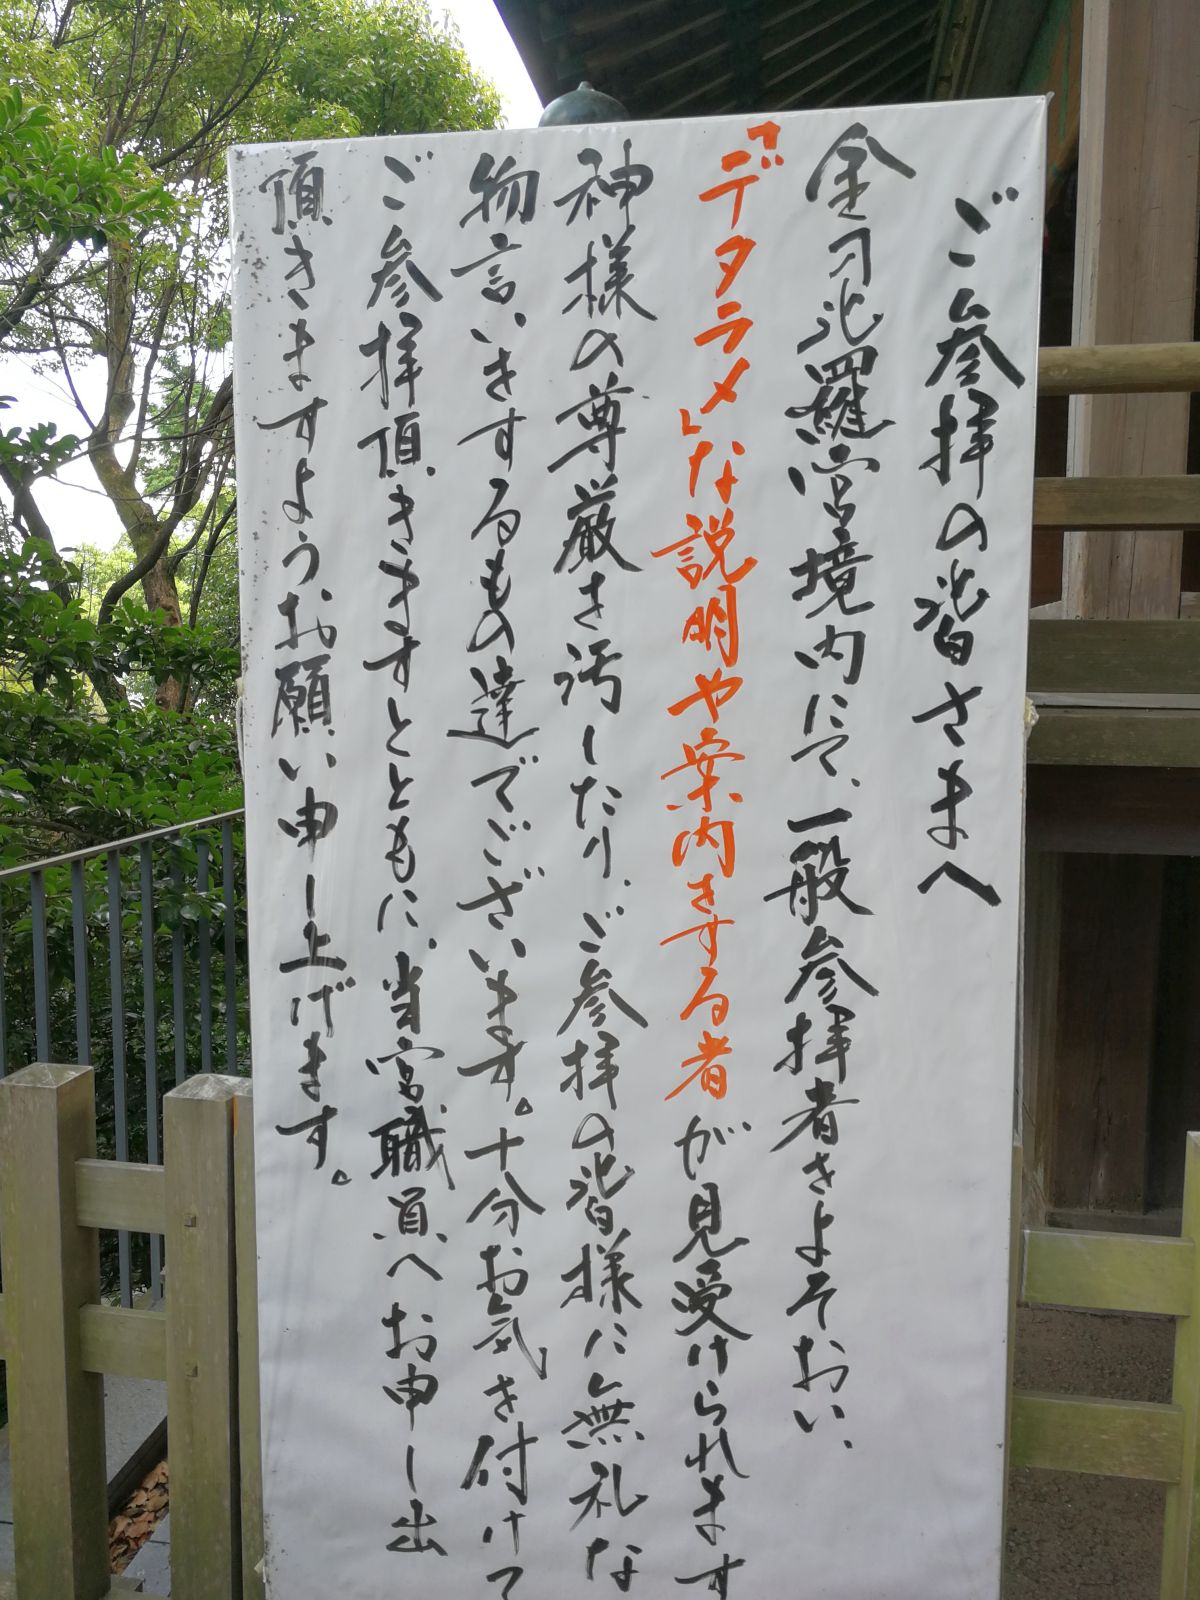 ご参拝の皆さまへ
金刀比羅宮境内にて、一般参拝者をよそおい、
「デタラメ」な説明や案内をする者が見受けられます
神様の尊厳を汚したり、ご参拝の皆様に無礼な
物言いをするもの達でございます。十分お気を付けて
ご参拝頂きますとともに、当宮職員へお申し出
頂きますようお願い申し上げます。